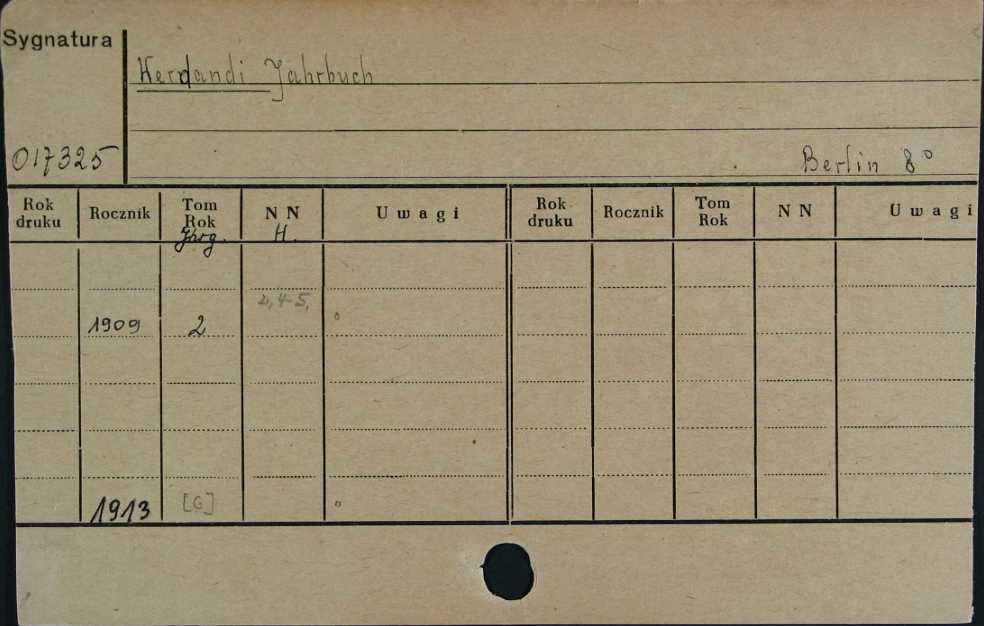 Sygnatura
Werdandi Jahrbuch
017325
Berlin 8°
Rok druku Rocznik Tom Rok NN Uwagi Rok druku Rocznik Tom Rok NN Uwagi
Jhrg. H.
2,4-5,
1909 2
1913 [6]